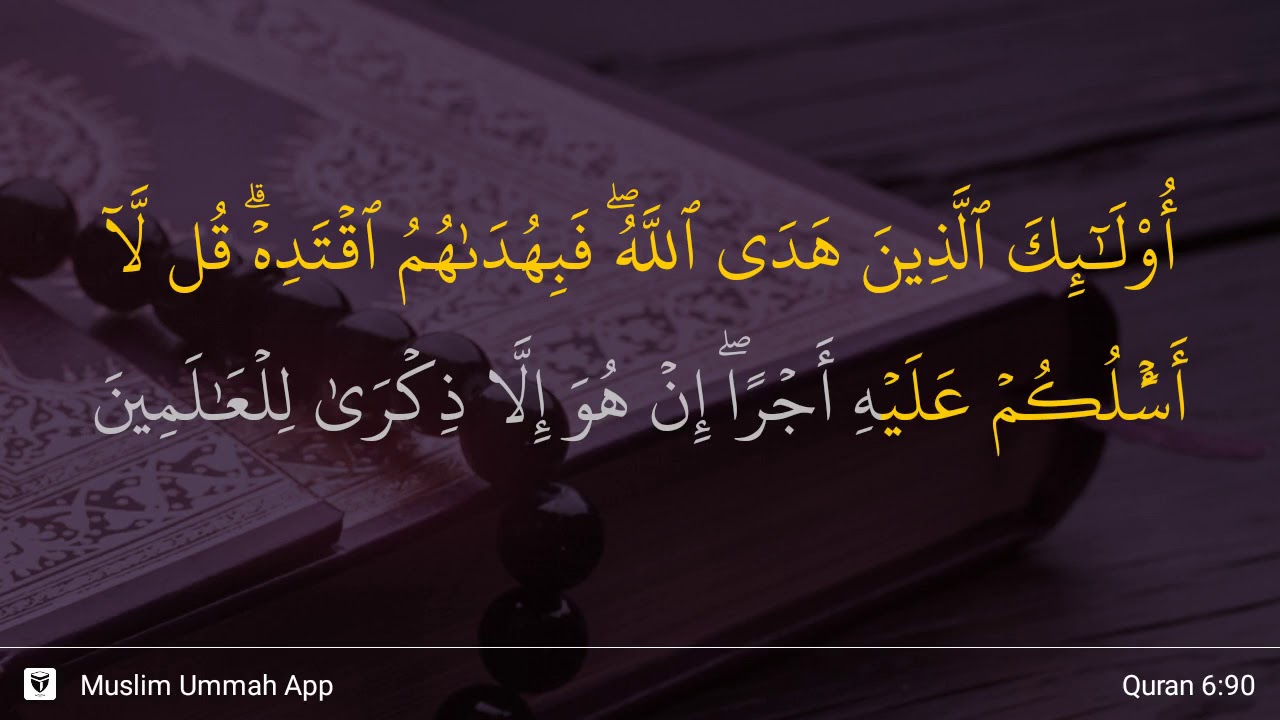 أُوْلَـٰٓئِكَ ٱلَّذِينَ هَدَى ٱللَّهُۖ فَبِهُدَىٰهُمُ ٱقۡتَدِهۡۗ قُل لَّآ
أَسۡـَٔلُكُمۡ عَلَيۡهِ أَجۡرًاۖ إِنۡ هُوَ إِلَّا ذِكۡرَىٰ لِلۡعَٰلَمِينَ
Muslim Ummah App
Quran 6:90